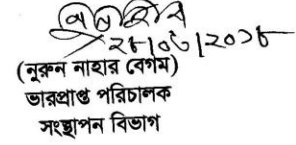 ২৮|০৬|২০১৮
(নুরুন নাহার বেগম)
ভারপ্রাপ্ত পরিচালক
সংস্থাপন বিভাগ